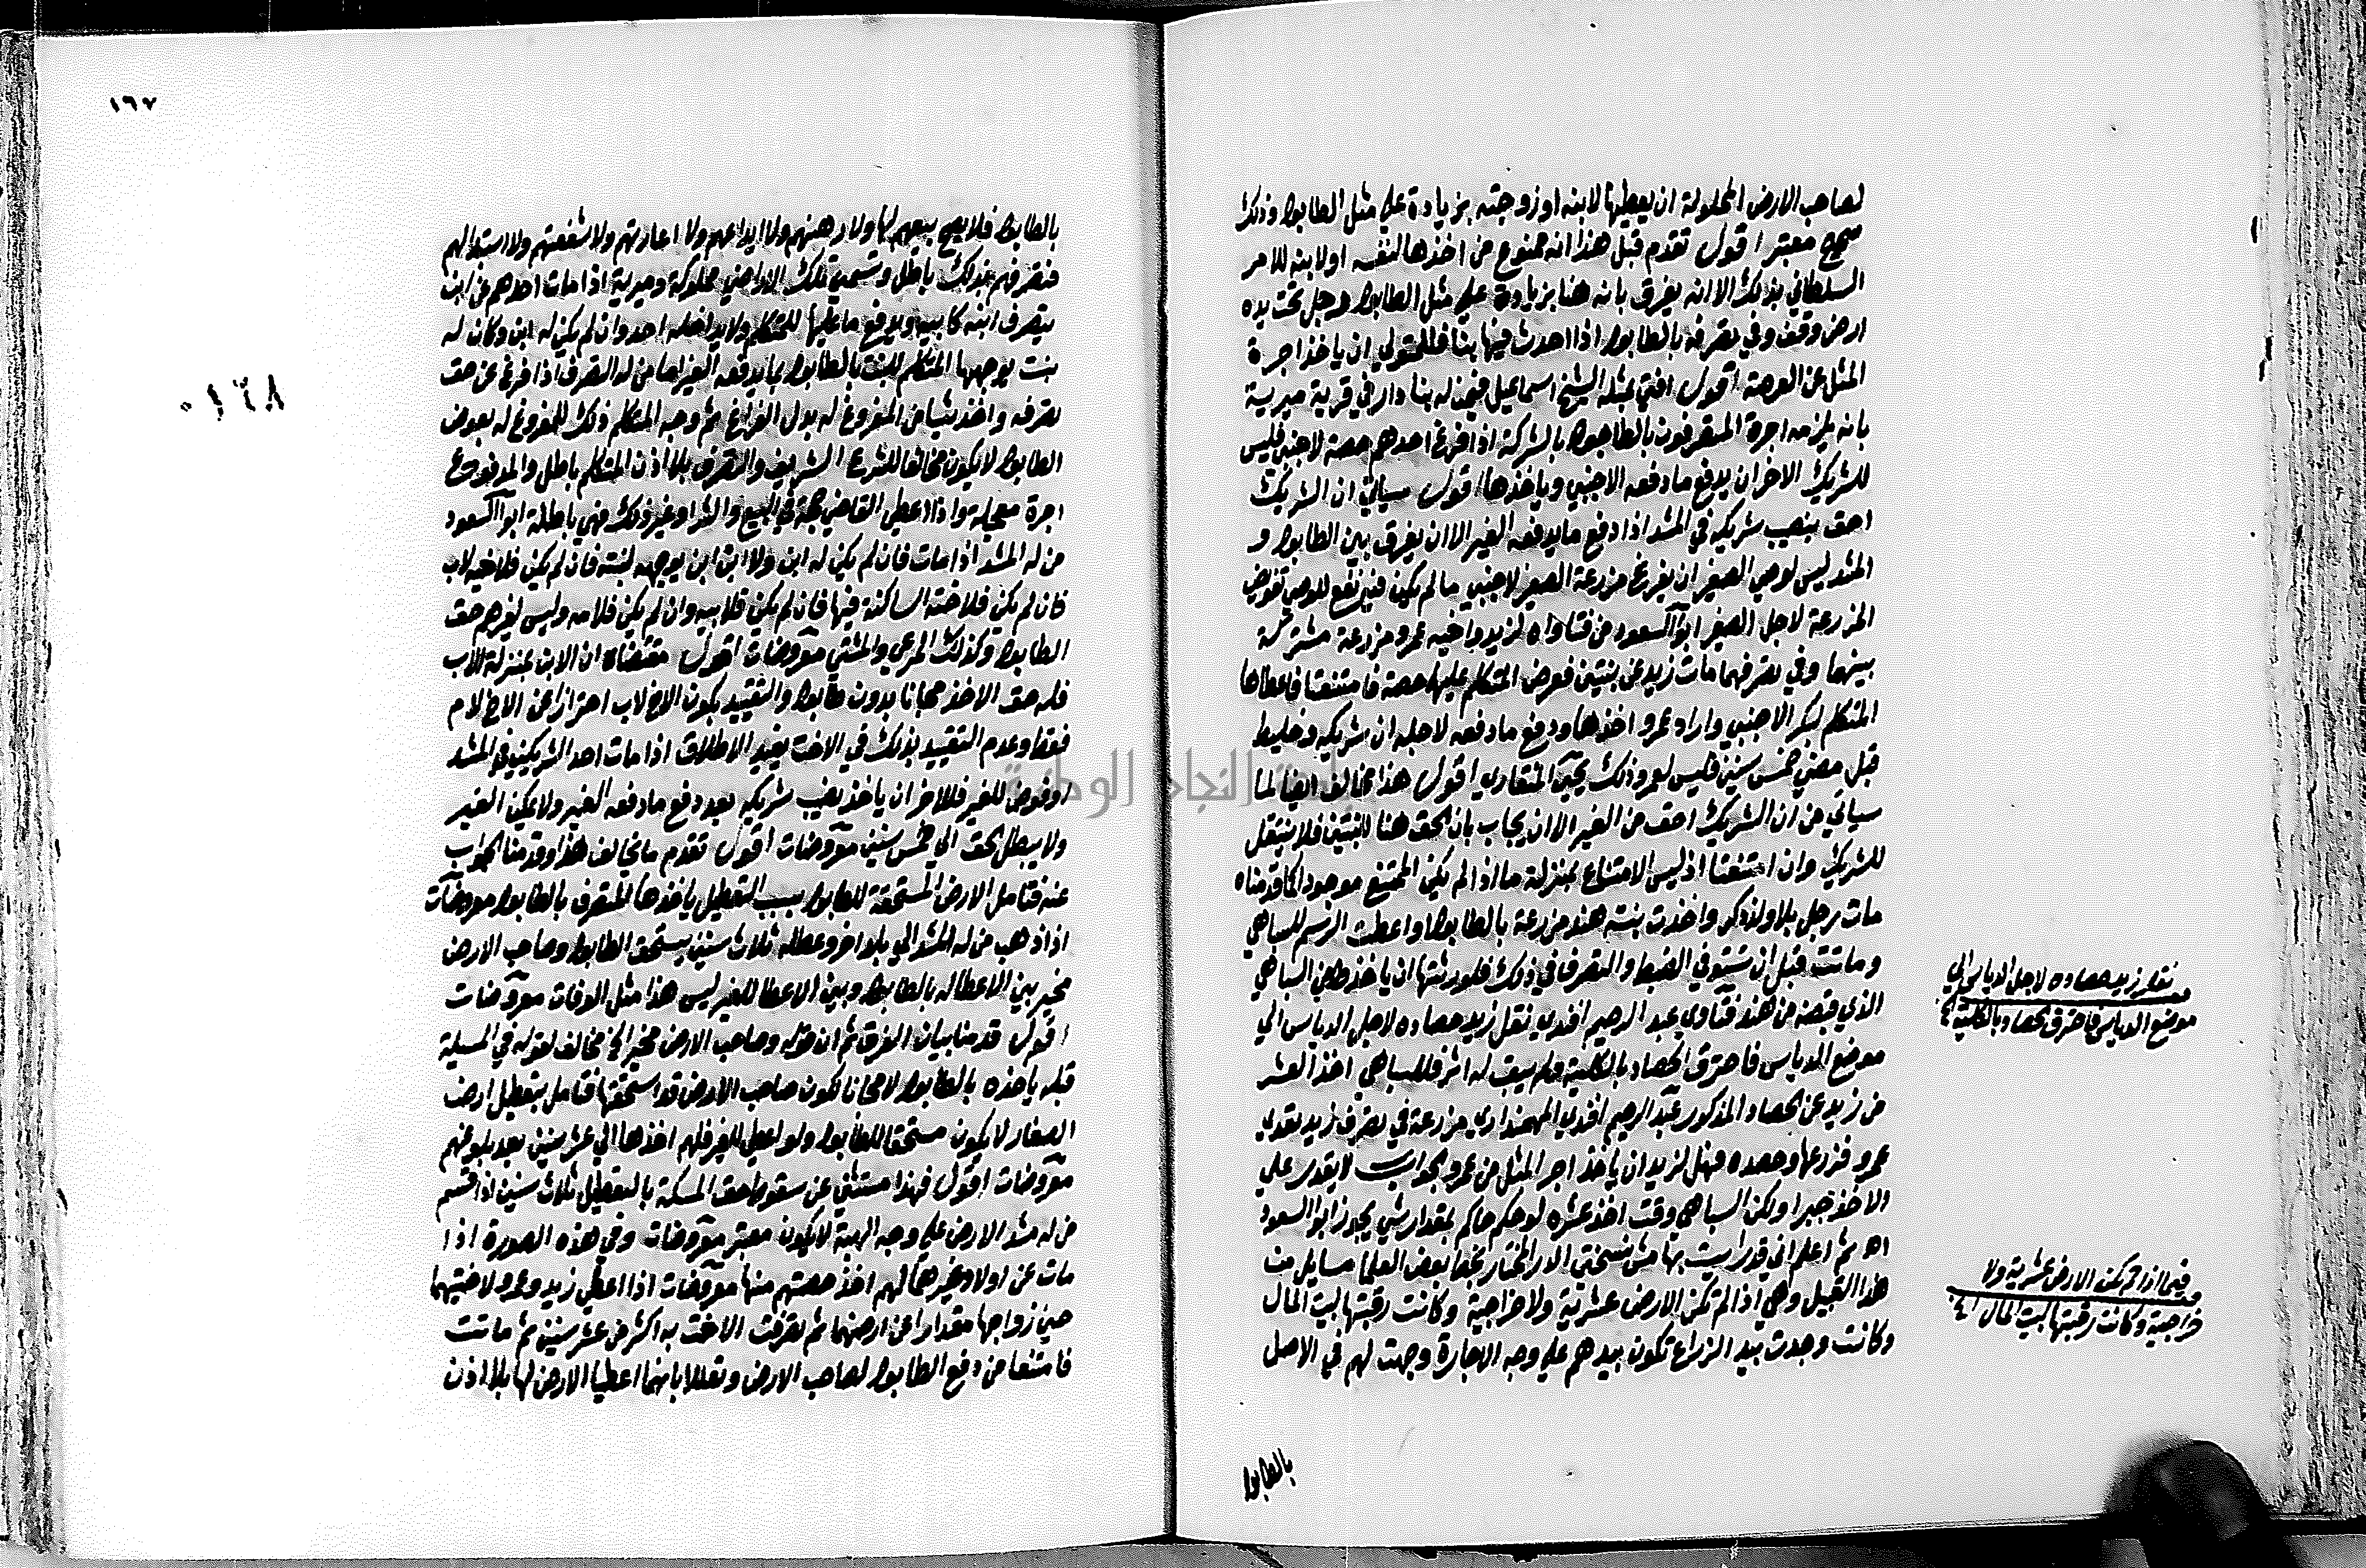 لصاحب الارض المحلولة ان يعطيها لابنه او زوجته بزيادة على مثل الطابو وذلك
صحيح معتبر اقول تقدم قبل هذا انه ممنوع من اخذها لنفسه او لابنه للامر
السلطاني بذلك الا انه يفرق بانه هنا بزيادة على مثل الطابو رجل تحت يده
ارض وقف وفي تصرفه بالطابو اذا احدث فيها بنا فللمتولي ان ياخذ اجرة
المثل عن العرصة اقول افتى بمثله الشيخ اسماعيل فيمن له بنا دار في قرية ميرية
بانه يلزمه اجرة المتصرفون بالطابو بالشركة اذا فرغ احدهم حصة لاجنبي فليس
للشريك الاخر ان يدفع ما دفعه الاجنبي وياخذها اقول سياتي ان الشريك
احق بنصيب شريكه في المشد اذا دفع ما يدفعه الغير الا ان يفرق بين الطابو و
المشد ليس لوصي الصغير ان يفرغ مزرعة الصغير لاجنبي ما لم يكن فيه نفع للوصي تفويض
المزرعة لاجل الصغير ابو السعود من فتاواه لزيد واخيه عمرو مزرعة مشتركة
بينهما وفي تصرفهما مات زيد عن بنتين فعرض المتكلم عليهما حصة فامتنعتا فاعطاها
المتكلم لبكر الاجنبي واراد عمرو اخذها ودفع ما دفعه لاجله ان شريكه وخليط
قبل مضي خمس سنين فليس لعمرو ذلك يحيى المنقاري اقول هذا مخالف ايضا لما
سياتي من ان الشريك احق من الغير الا ان يجاب بان الحق هنا للبنتين فلا ينتقل
للشريك وان امتنعتا اذ ليس الامتناع بمنزلة ما اذا لم يكن الممتنع موجودا كما قدمناه
مات رجل بلا ولد ذكر واخذت بنته هند مزرعة بالطابو واعطت الرسم للسباهي
وماتت قبل ان تستوفي الضبط والتصرف في ذلك فلورثتها ان ياخذوا من السباهي
الذي قبضه من هند فتاوى عبد الرحيم افندي نقل زيد حصاده لاجل الدياس الى
موضع الدياس فاحترق الحصاد بالكلية ولم يبق له اثر فللسباهي اخذ العشر
من زيد عن الحصاد المذكور عبد الرحيم افندي المهمنداري مزرعة في تصرف زيد تعدى
عمرو فزرعها وحصده فهل لزيد ان ياخذ اجر المثل من عمرو الجواب لا يقدر على
الاخذ جبرا ولكن السباهي وقت اخذ عشره لو حكم حاكم بمقدار شي يجوز ابو السعود
اهـ ثم اعلم اني قد رايت بهامش نسختي الدر المختار بخط بعض العلما مسايل من
هذا القبيل وهي اذا لم تكن الارض عشرية ولا خراجية وكانت رقبتها لبيت المال
وكانت وجدت بيد الزراع تكون بيدهم على وجه الاجارة وجهت لهم في الاصل
بالطابو
نقل زيد حصاده لاجل الدياس الى
موضع الدياس فاحترق الحصاد بالكلية
فيما اذا لم تكن الارض عشرية ولا
خراجية وكانت رقبتها لبيت المال
١٦٧
١٦٨
بالطابو فلا يصح بيعهم لها ولا رهنهم ولا ايداعهم ولا اعارتهم ولا شفعتهم ولا استبدالهم
فتصرفهم بذلك باطل وتسمى تلك الاراضي مملوكة وميرية اذا مات احدهم عن ابن
يتصرف ابنه كابيه ويدفع ما عليها للمتكلم ولا يداخله احد وان لم يكن له ابن وكان له
بنت يوجهها المتكلم للبنت بالطابو بما يدفعه الغير اما من له التصرف اذا فرغ عن حق
تصرفه واخذ شيا من المفروغ له بدل الفراغ ثم وجه المتكلم ذلك للمفروغ له بعوض
الطابو لا يكون مخالفا للشرع الشريف والتصرف بلا اذن المتكلم باطل والمدفوع
اجرة معجلة واذا اعطى القاضي حجة في البيع والشرا وغير ذلك فهي باطلة ابو السعود
من له المشد اذا مات فان لم يكن له ابن ولا ابن ابن يوجهه لبنته فان لم يكن فلاخيه لاب
فان لم يكن فلاخته الساكنة فيها فان لم يكن فلابيه وان لم يكن فلامه وليس لغيرهم حق
الطابو وكذلك المرعى والمشتى معروضات اقول مقتضاه ان الابن بمنزلة الاب
فله حق الاخذ مجانا بدون طابو والتقييد بكون الاخ لاب احتراز عن الاخ لام
فقط وعدم التقييد بذلك في الاخت يفيد الاطلاق اذا مات احد الشريكين في المشد
او فوض للغير فللاخر ان ياخذ نصيب شريكه بعد دفع ما دفعه الغير ولا يمكن الغير
ولا يبطل حق الى خمس سنين معروضات اقول تقدم ما يخالف هذا وقدمنا الجواب
عنه فتامل الارض المستحقة للطابو بسبب التعطيل ياخذها المتصرف بالطابو معروضات
اذا ذهب من له المشد الى بلد اخر وعطله ثلاث سنين يستحق الطابو وصاحب الارض
مخير بين الاعطا له بالطابو وبين الاعطا للغير ليس هذا مثل الوفات معروضات
اقول قدمنا بيان الفرق ثم ان قوله وصاحب الارض مخير الخ مخالف لقوله في المسيلة
قبله ياخذه بالطابو لا مجانا لكون صاحب الارض قد استحقها فتامل بتعطيل ارض
الصغار لا يكون مستحقا للطابو ولو اعطى للغير فلهم اخذها الى عشر سنين بعد بلوغهم
معروضات اقول فهذا مستثنى عن سقوط حق المسكة بالتعطيل ثلاث سنين اذا قسم
من له مشد الارض على وجه الهبة لا يكون معتبرا معروضات وفي هذه الصورة اذا
مات عن اولاد وغيرهما لهم اخذ حصتهم منها معروضات اذا اعطى زيد وعمرو لاختيهما
حين زواجها مقدارا من ارضهما ثم تصرفت الاخت به اكثر من عشر سنين ثم ماتت
فامتنعا من دفع الطابو لصاحب الارض وتعللا بانهما اعطيا الارض لها بلا اذن